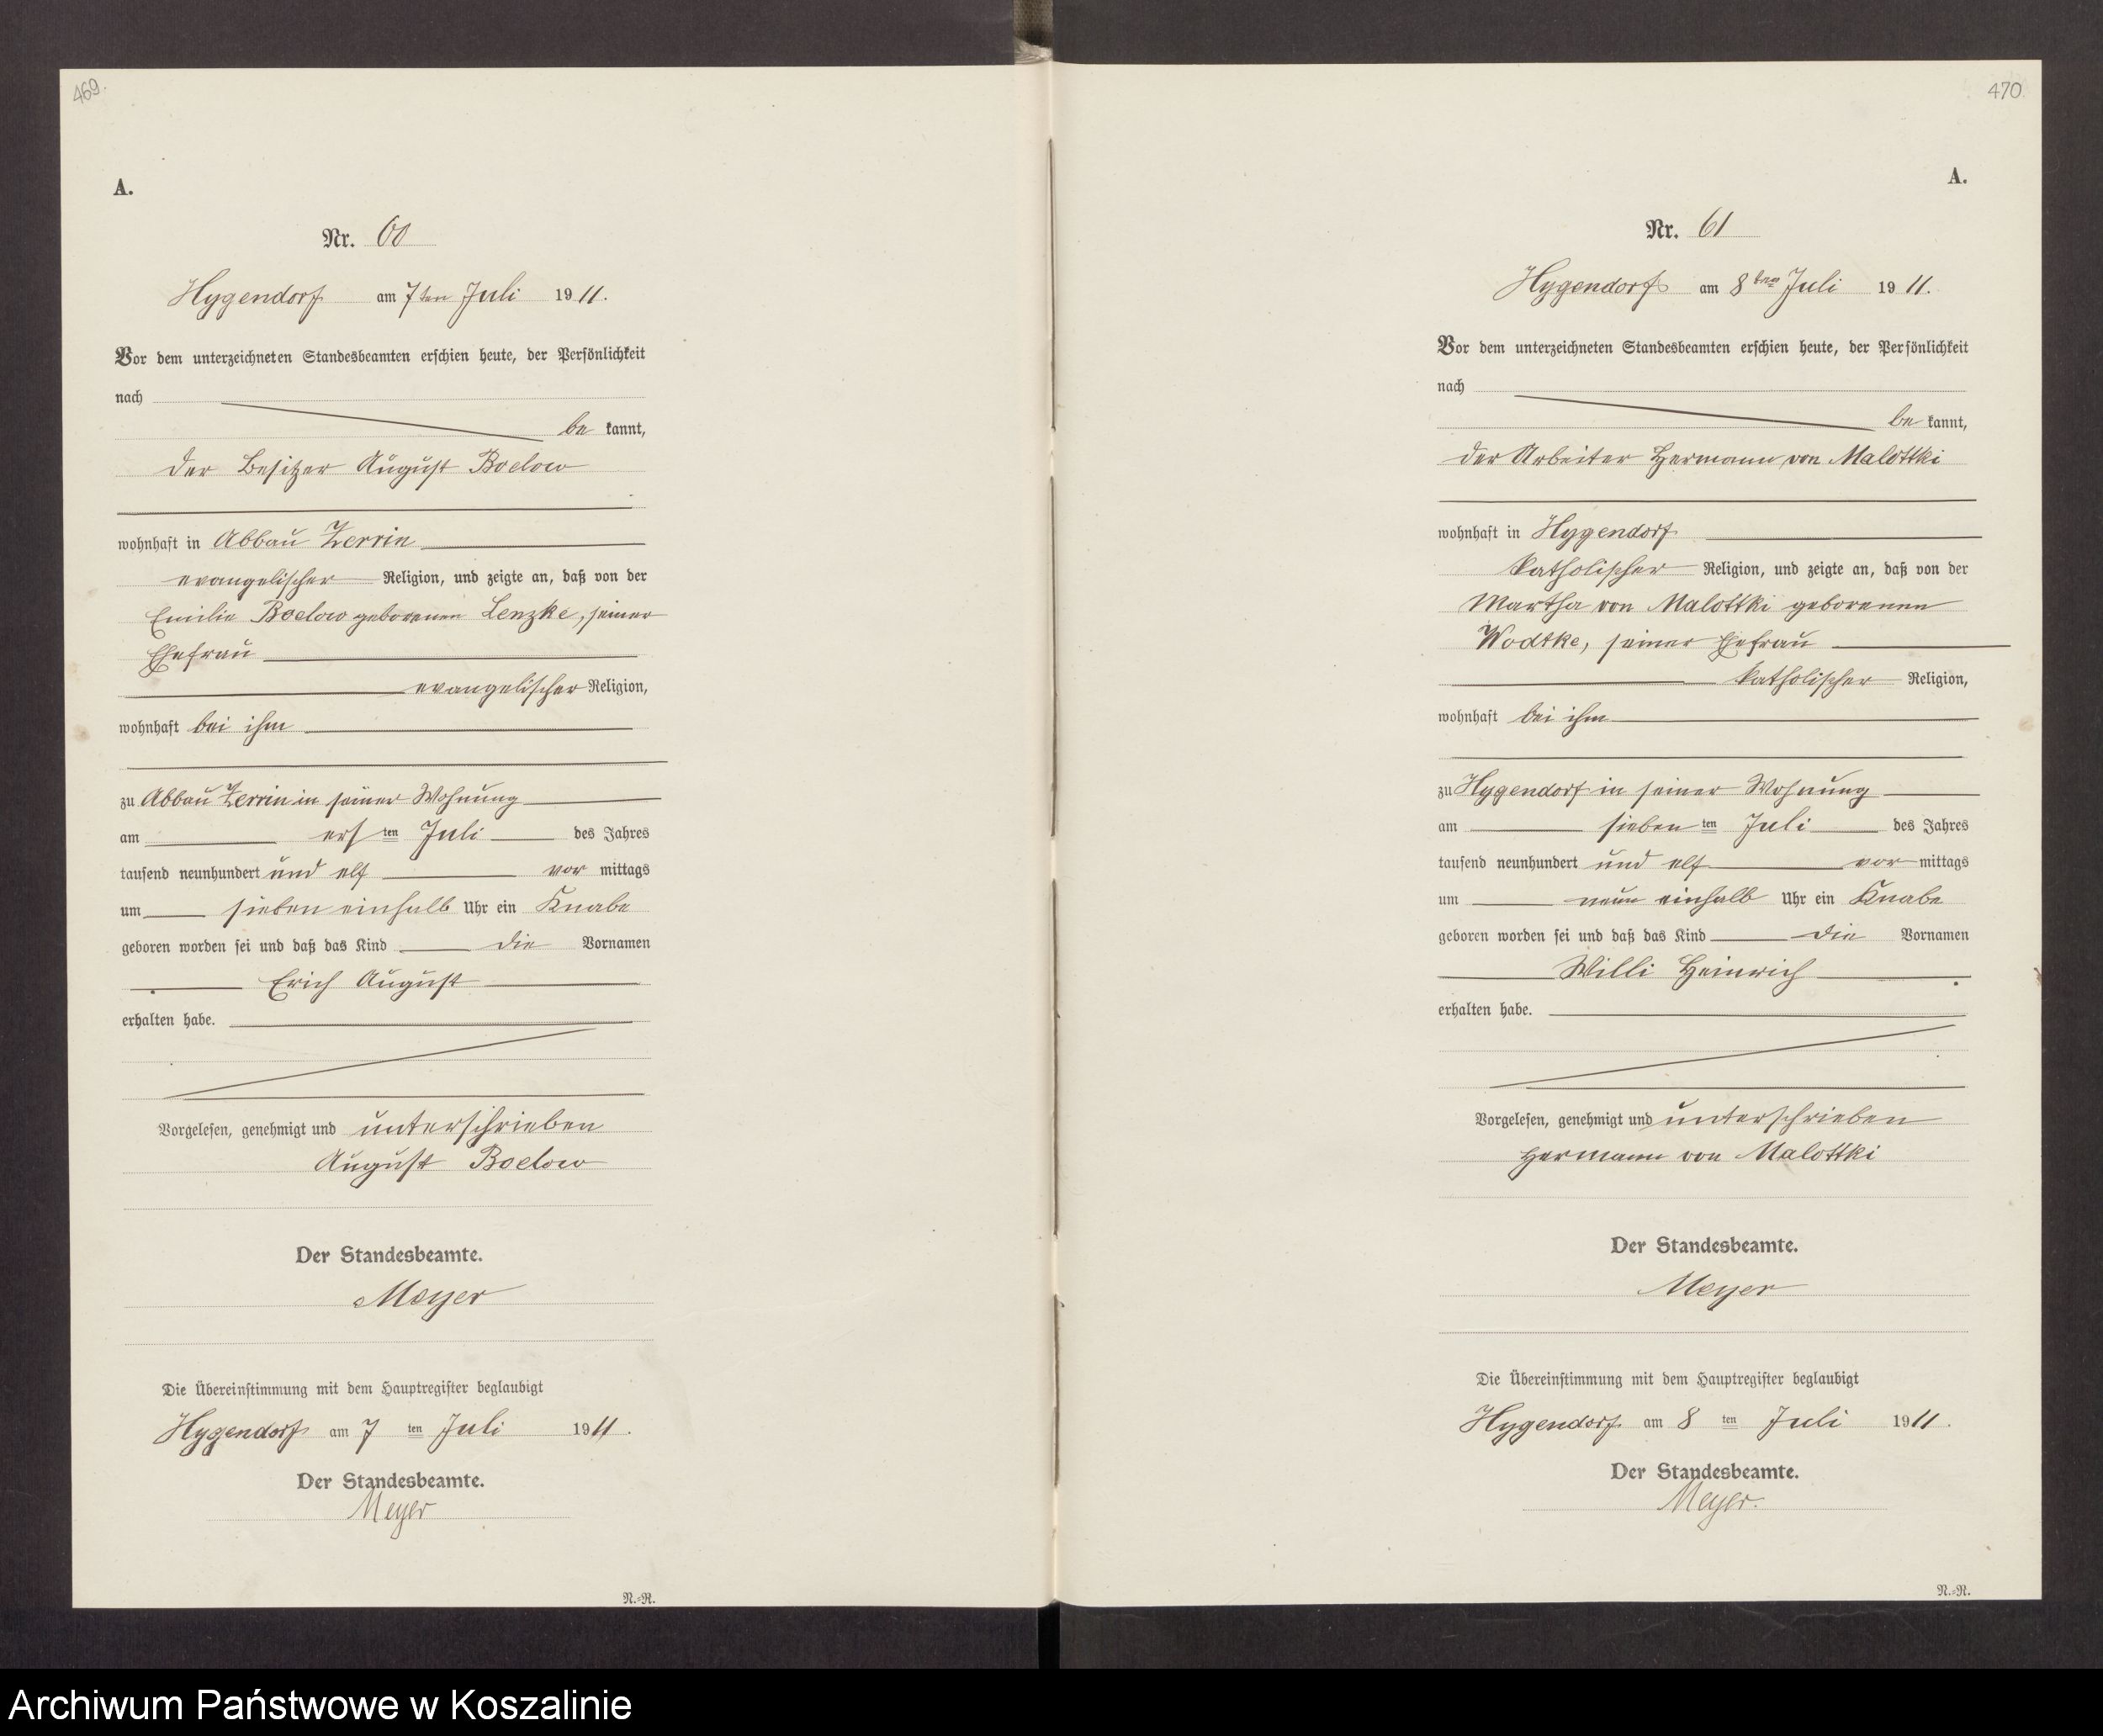 469.
A.
Nr. 60
Hygendorf am 7ten Juli 1911.
Vor dem unterzeichneten Standesbeamten erschien heute, der Persönlichkeit
nach
be kannt,
der Besitzer August Boelow
wohnhaft in Abbau Zerrin
evangelischer Religion, und zeigte an, daß von der
Emilie Boelow geborenen Lenzke, seiner
Ehefrau
evangelischer Religion,
wohnhaft bei ihm
zu Abbau Zerrin in seiner Wohnung
am ersten Juli des Jahres
tausend neunhundert und elf vor mittags
um sieben einhalb Uhr ein Knabe
geboren worden sei und daß das Kind die Vornamen
Erich August
erhalten habe.
Vorgelesen, genehmigt und unterschrieben
August Boelow
Der Standesbeamte.
Meyer
Die Übereinstimmung mit dem Hauptregister beglaubigt
Hygendorf am 7 ten Juli 1911.
Der Standesbeamte.
Meyer
N.=R.
470
A.
Nr. 61
Hygendorf am 8ten Juli 1911.
Vor dem unterzeichneten Standesbeamten erschien heute, der Persönlichkeit
nach
be kannt,
der Arbeiter Hermann von Malottki
wohnhaft in Hygendorf
katholischer Religion, und zeigte an, daß von der
Martha von Malottki geborenen
Wodtke, seiner Ehefrau
katholischer Religion,
wohnhaft bei ihm
zu Hygendorf in seiner Wohnung
am siebenten Juli des Jahres
tausend neunhundert und elf vor mittags
um neun einhalb Uhr ein Knabe
geboren worden sei und daß das Kind die Vornamen
Willi Heinrich
erhalten habe.
Vorgelesen, genehmigt und unterschrieben
Hermann von Malottki
Der Standesbeamte.
Meyer
Die Übereinstimmung mit dem Hauptregister beglaubigt
Hygendorf am 8 ten Juli 1911.
Der Standesbeamte.
Meyer.
N.=R.
Archiwum Państwowe w Koszalinie